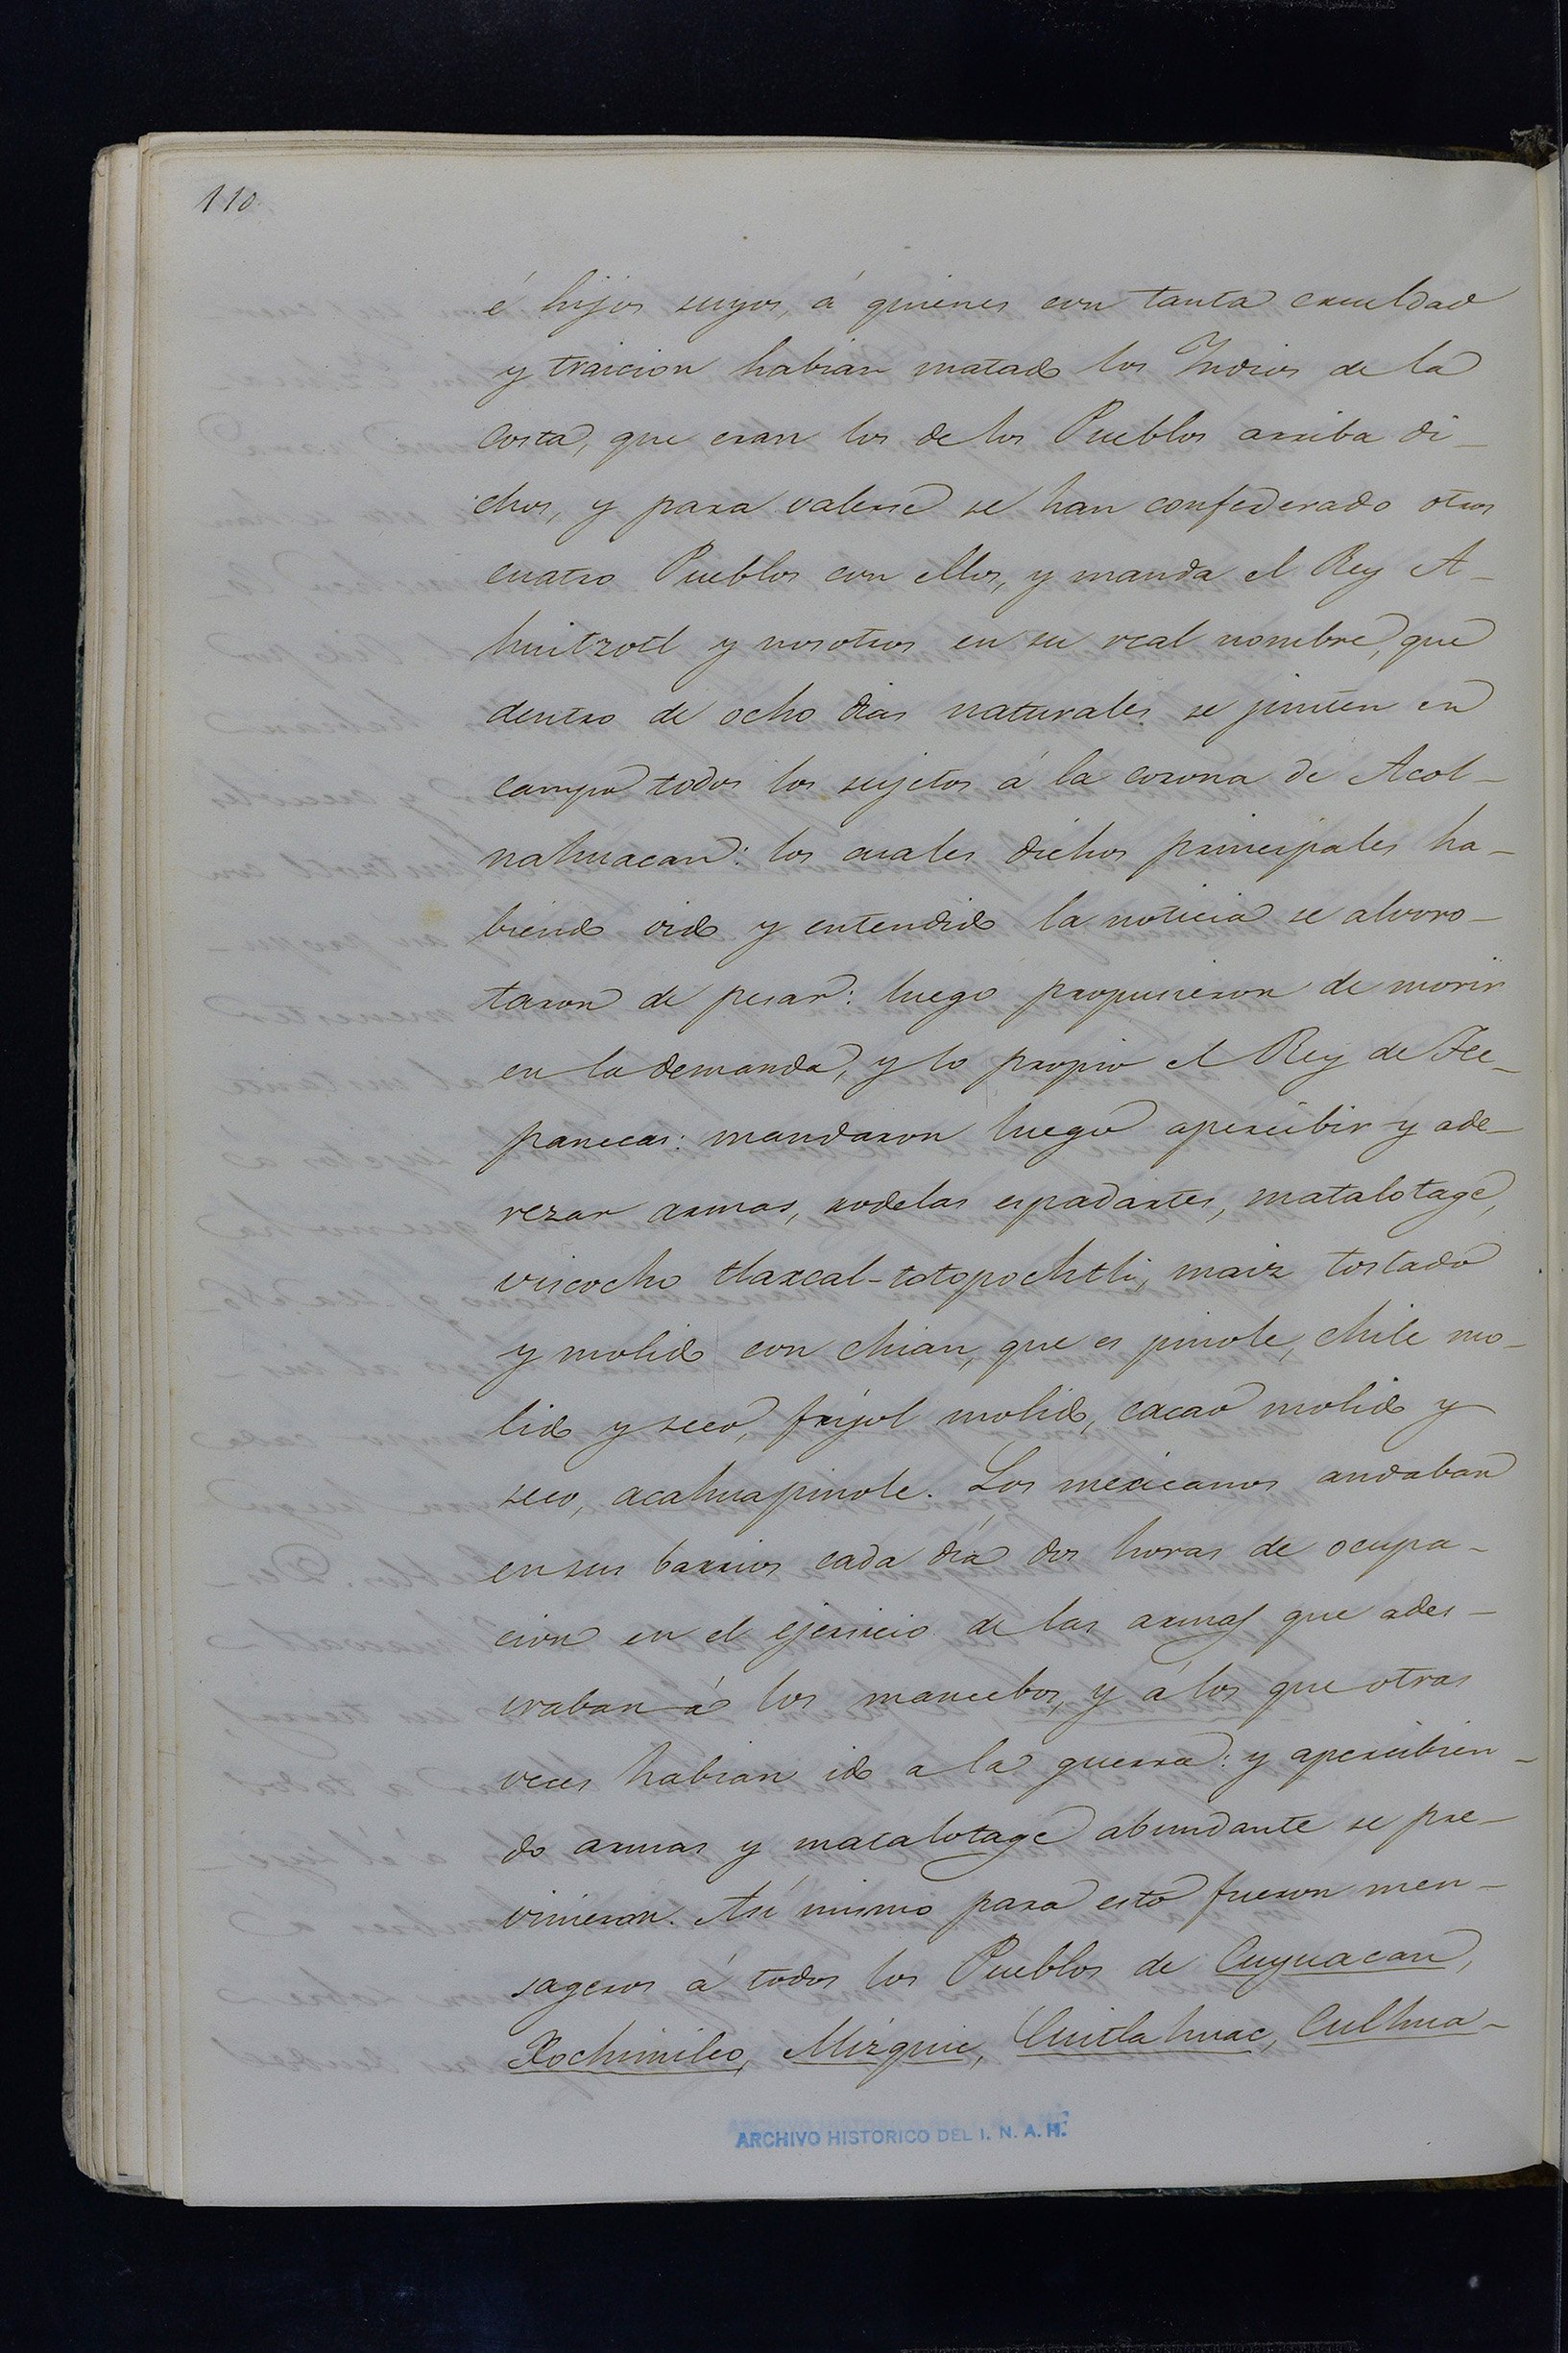 110.
é hijos suyos, á quienes con tanta crueldad
y traicion habian matado los Indios de la
costa, que eran los de los Pueblos arriba di-
chos, y para valerse se han confederado otros
cuatro Pueblos con ellos, y manda el Rey A-
huitzotl y nosotros en su real nombre, que
dentro de ocho dias naturales se junten en
campo todos los sujetos á la corona de Acol-
nahuacan: los cuales dichos principales ha-
biendo oido y entendido la noticia se alvoro-
taron de pesar: luego propusieron de morir
en la demanda, y lo propio el Rey de Te-
panecas: mandaron luego apercibir y ade-
rezar armas, rodelas espadartes, matalotage,
viscocho tlaxcal-totopochtli, maiz tostado
y molido con chian, que es pinole, chile mo-
lido y seco, frijol molido, cacao molido y
seco, acahuapinole. Los mexicanos andaban
en sus barrios cada día dos horas de ocupa-
cion en el ejercicio de las armas que ades-
traban á los mancebos, y á los que otras
veces habian ido a la guerra: y apercibien-
do armas y matalotage abundante se pre-
vinieron. Asi mismo para esto fueron men-
sageros á todos los Pueblos de Cuyuacan,
Xochimilco, Mizquic, Cuitlahuac, Culhua-
ARCHIVO HISTORICO DEL I. N. A. H.